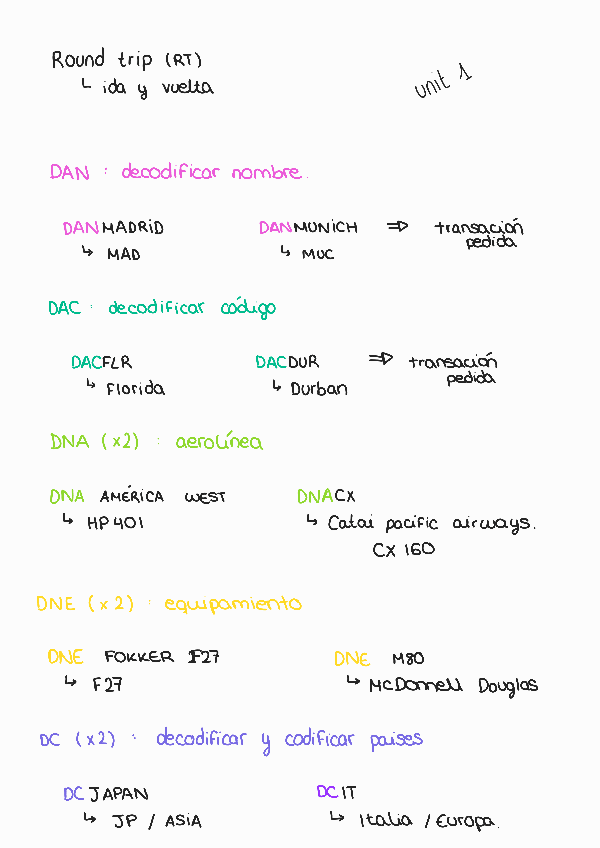 Round trip (RT)
↳ ida y vuelta
unit 1
DAN : decodificar nombre.
DANMADRID
↳ MAD
DANMUNICH ⇒ transación pedida
↳ MUC
DAC : decodificar código
DACFLR
↳ Florida
DACDUR ⇒ transación pedida
↳ Durban
DNA (x2) : aerolínea
DNA AMÉRICA WEST
↳ HP 401
DNACX
↳ Catai pacific airways.
CX 160
DNE (x2) : equipamiento
DNE FOKKER F27
↳ F27
DNE M80
↳ McDonnell Douglas
DC (x2) : decodificar y codificar paises
DC JAPAN
↳ JP / ASIA
DCIT
↳ Italia / Europa.